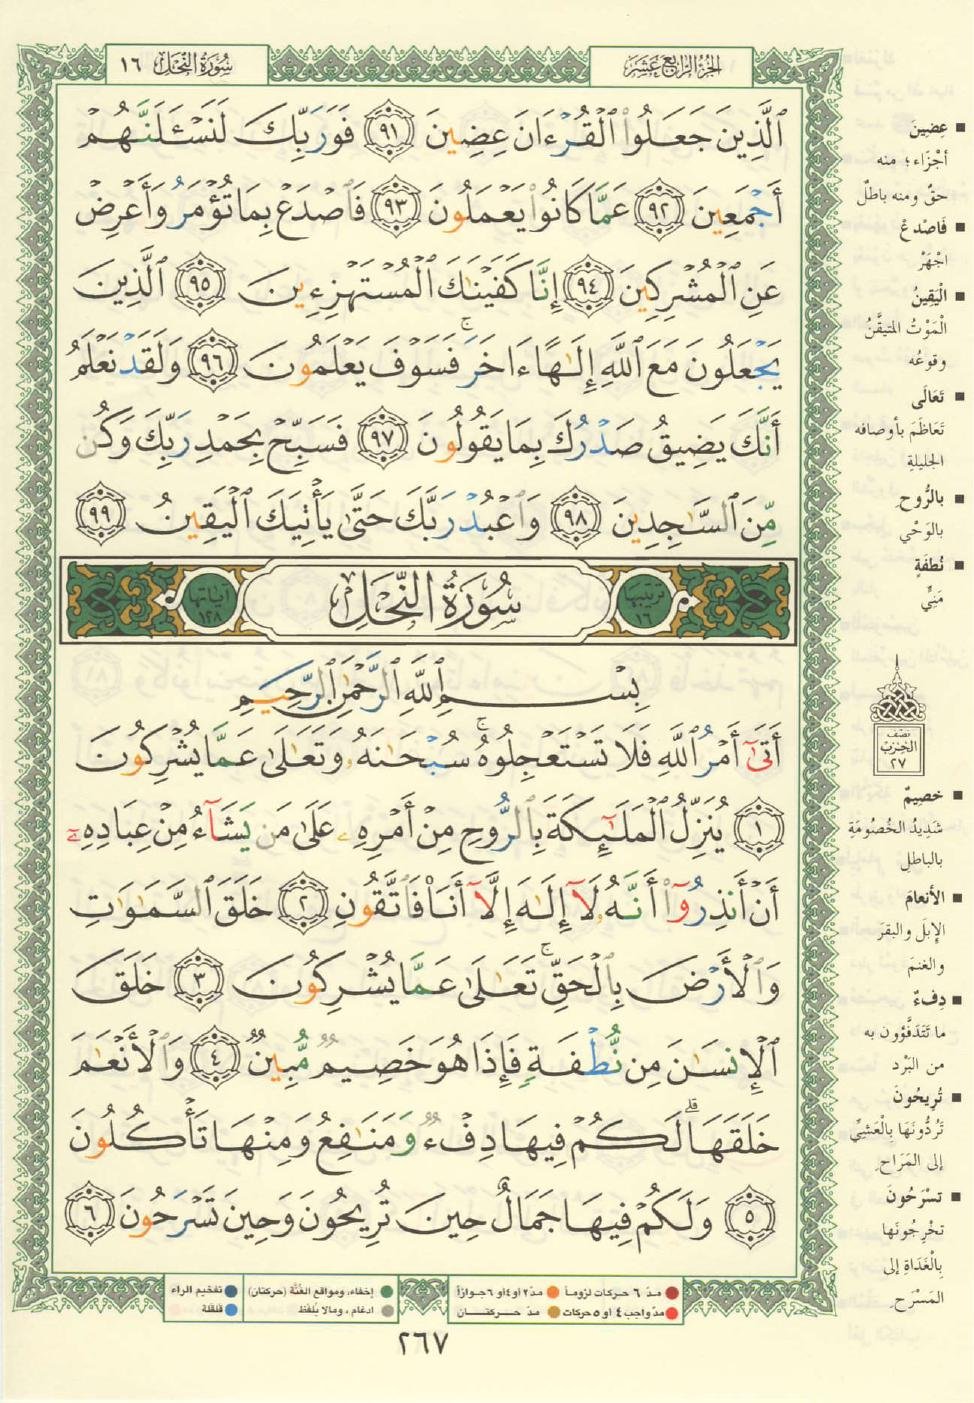 سُورَةُ النَّحْلِ ١٦
الجُزْءُ الرَّابِعَ عَشَرَ
ٱلَّذِينَ جَعَلُوا۟ ٱلْقُرْءَانَ عِضِينَ ٩١ فَوَرَبِّكَ لَنَسْـَٔلَنَّهُمْ
أَجْمَعِينَ ٩٢ عَمَّا كَانُوا۟ يَعْمَلُونَ ٩٣ فَٱصْدَعْ بِمَا تُؤْمَرُ وَأَعْرِضْ
عَنِ ٱلْمُشْرِكِينَ ٩٤ إِنَّا كَفَيْنَـٰكَ ٱلْمُسْتَهْزِءِينَ ٩٥ ٱلَّذِينَ
يَجْعَلُونَ مَعَ ٱللَّهِ إِلَـٰهًا ءَاخَرَ ۚ فَسَوْفَ يَعْلَمُونَ ٩٦ وَلَقَدْ نَعْلَمُ
أَنَّكَ يَضِيقُ صَدْرُكَ بِمَا يَقُولُونَ ٩٧ فَسَبِّحْ بِحَمْدِ رَبِّكَ وَكُن
مِّنَ ٱلسَّـٰجِدِينَ ٩٨ وَٱعْبُدْ رَبَّكَ حَتَّىٰ يَأْتِيَكَ ٱلْيَقِينُ ٩٩
ترتيبها ١٦ سُورَةُ النَّحْلِ آياتها ١٢٨
بِسْمِ ٱللَّهِ ٱلرَّحْمَـٰنِ ٱلرَّحِيمِ
أَتَىٰٓ أَمْرُ ٱللَّهِ فَلَا تَسْتَعْجِلُوهُ ۚ سُبْحَـٰنَهُۥ وَتَعَـٰلَىٰ عَمَّا يُشْرِكُونَ
١ يُنَزِّلُ ٱلْمَلَـٰٓئِكَةَ بِٱلرُّوحِ مِنْ أَمْرِهِۦ عَلَىٰ مَن يَشَآءُ مِنْ عِبَادِهِۦٓ
أَنْ أَنذِرُوٓا۟ أَنَّهُۥ لَآ إِلَـٰهَ إِلَّآ أَنَا۠ فَٱتَّقُونِ ٢ خَلَقَ ٱلسَّمَـٰوَٰتِ
وَٱلْأَرْضَ بِٱلْحَقِّ ۚ تَعَـٰلَىٰ عَمَّا يُشْرِكُونَ ٣ خَلَقَ
ٱلْإِنسَـٰنَ مِن نُّطْفَةٍ فَإِذَا هُوَ خَصِيمٌ مُّبِينٌ ٤ وَٱلْأَنْعَـٰمَ
خَلَقَهَا ۗ لَكُمْ فِيهَا دِفْءٌ وَمَنَـٰفِعُ وَمِنْهَا تَأْكُلُونَ
٥ وَلَكُمْ فِيهَا جَمَالٌ حِينَ تُرِيحُونَ وَحِينَ تَسْرَحُونَ ٦
عِضِينَ
أجْزَاء؛ منه
حقٌ ومنه باطلٌ
فَاصْدعْ
اجْهَرْ
الْيَقِينُ
الْمَوْتُ المتيقَّنُ
وقوعُه
تَعَالَى
تَعَاظَمَ بأوصافه
الجليلةِ
بِالرُّوحِ
بالوَحْي
نُطفَةٍ
مَنِيٍّ
نصف
الحِزب
٢٧
خصِيمٌ
شَدِيدُ الخُصُومَةِ
بالباطلِ
الأنعامَ
الإبلَ والبقرَ
والغنمَ
دِفءٌ
ما تَتَدَفَّؤون به
من البَرْدِ
تُرِيحُونَ
تَرُدُّونَهَا بِالْعَشِيِّ
إلى المَرَاحِ
تسْرَحُونَ
تخْرِجُونَها
بِالْغَدَاةِ إلى
المَسْرَحِ
مدّ ٦ حركات لزوماً
مدّ ٢ أو ٤ أو ٦ جوازاً
إخفاء، ومواقع الغُنَّة (حركتان)
تفخيم الراء
مدّ واجب ٤ أو ٥ حركات
مدّ حركتـان
ادغام، ومالا يُلفَظ
قلقلة
٢٦٧